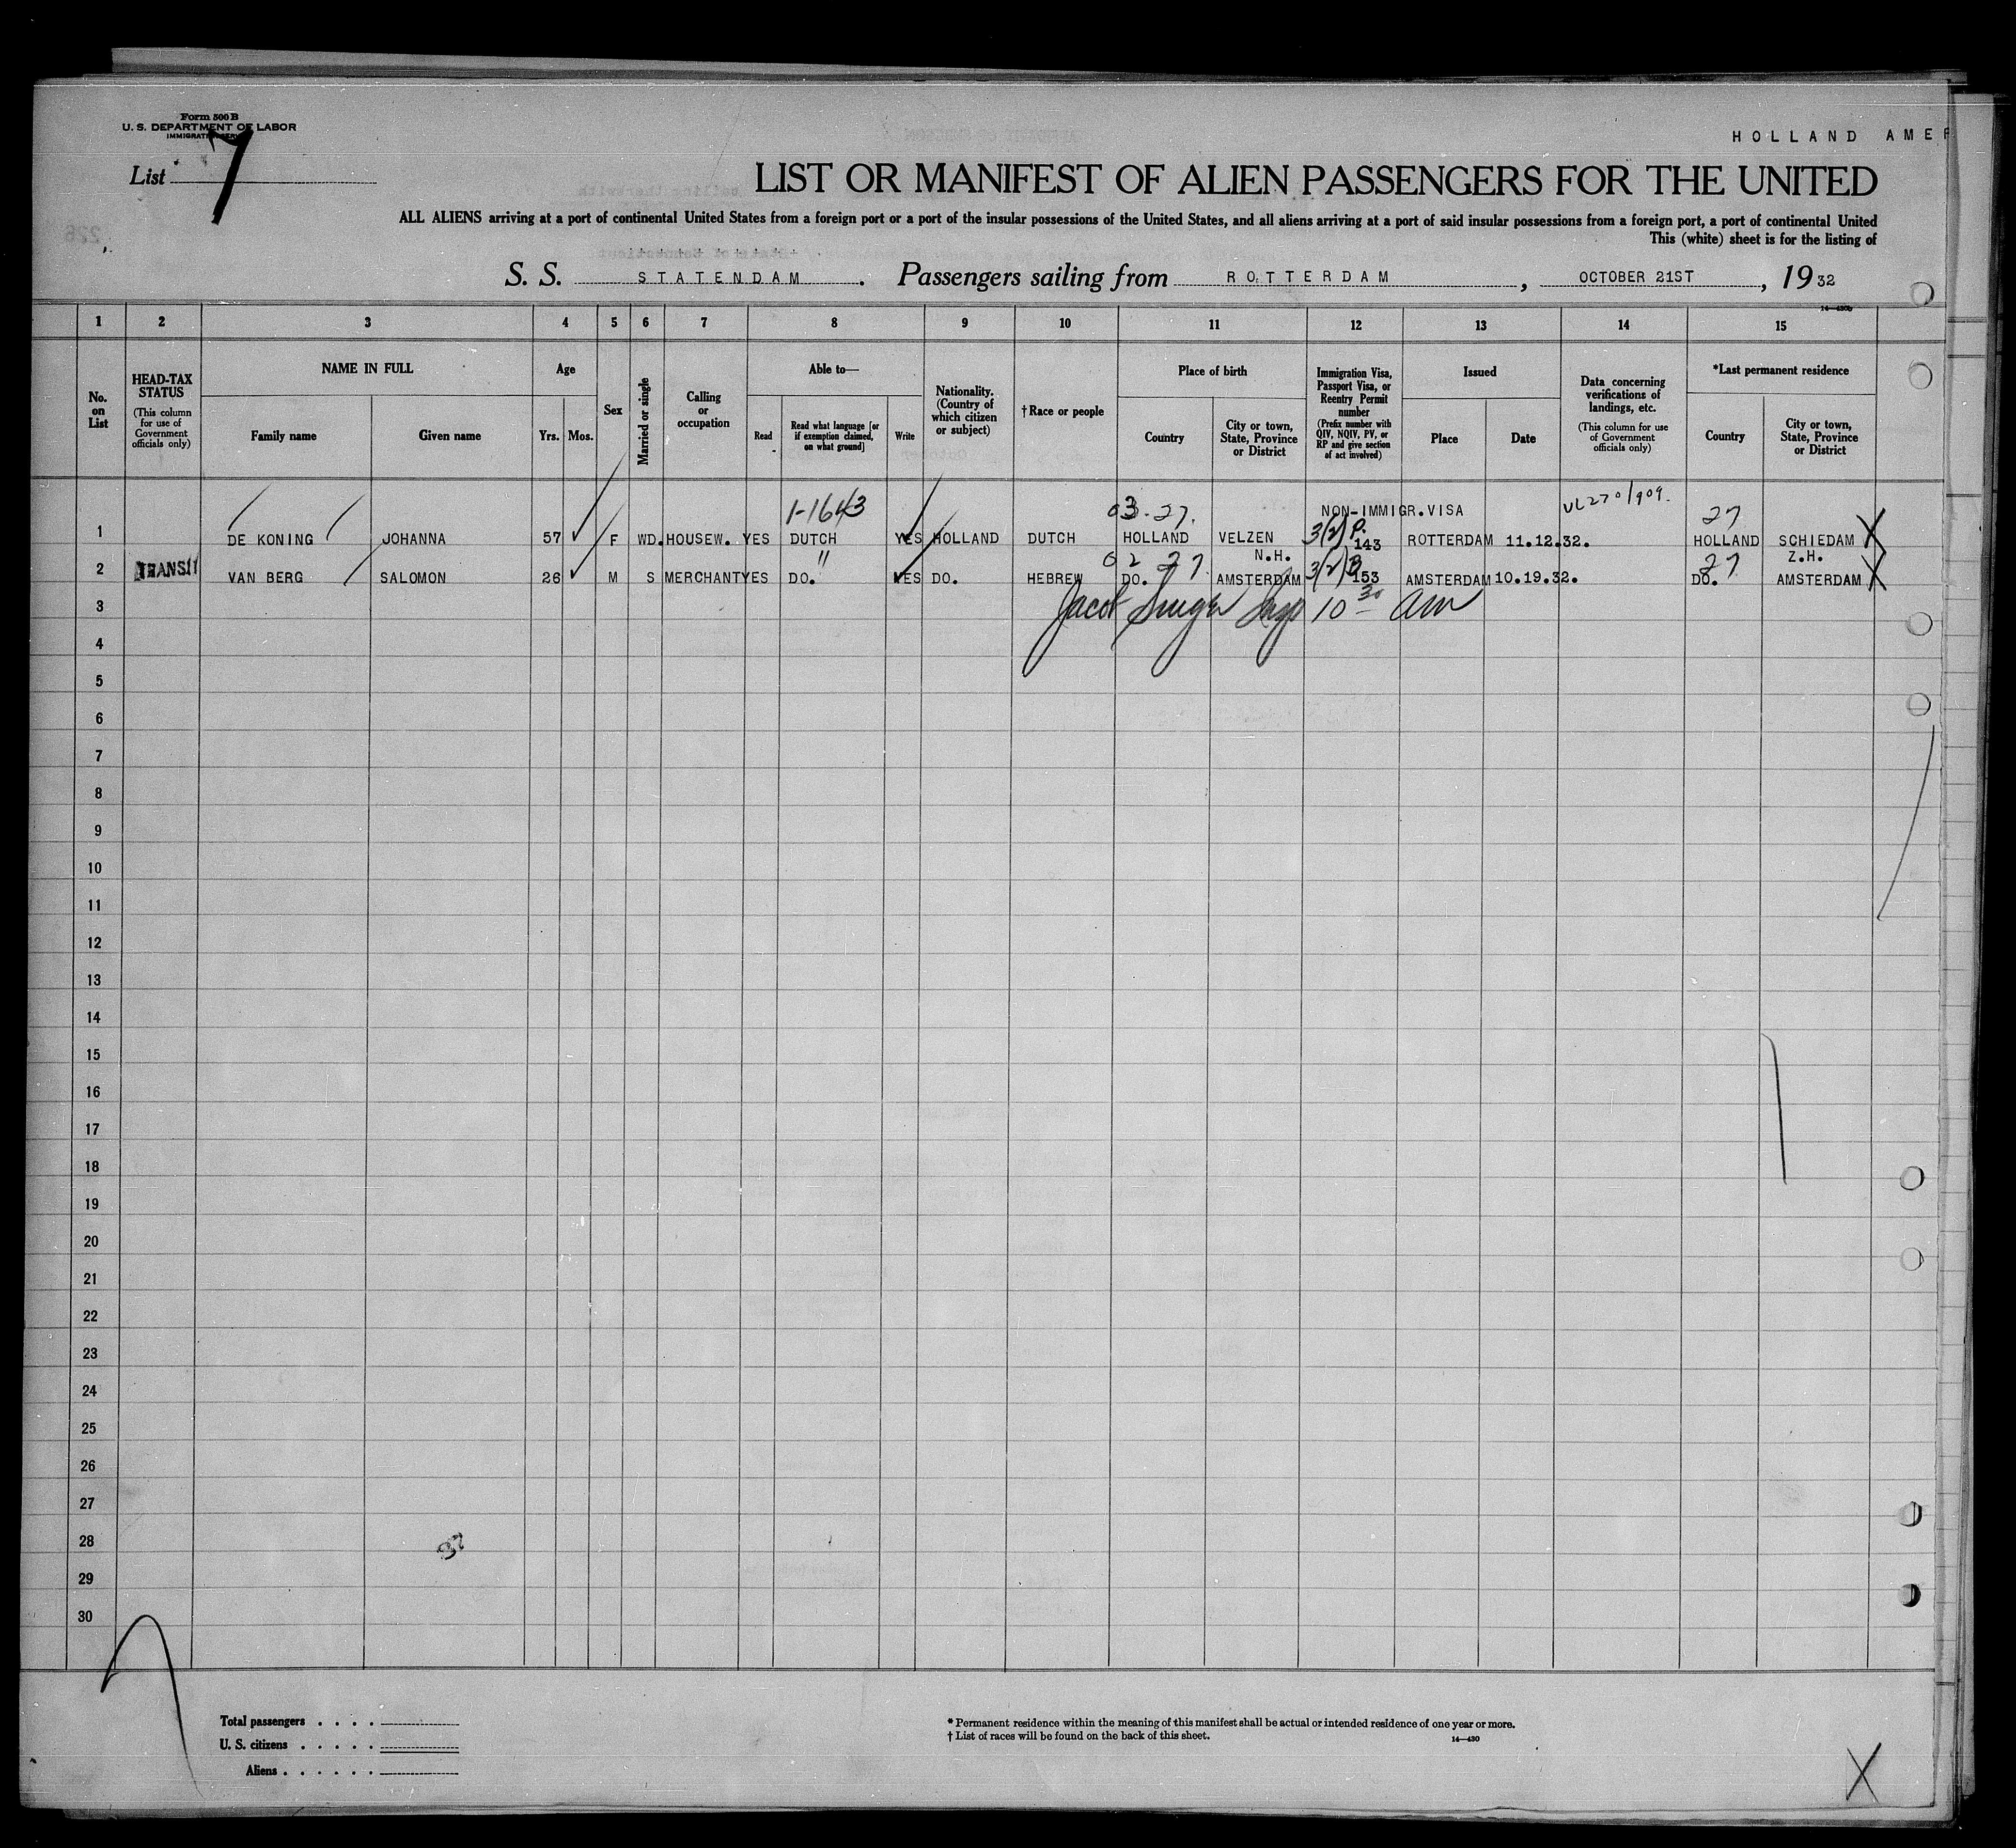 Form 500 B
U. S. DEPARTMENT OF LABOR
HOLLAND AMER
List 7
LIST OR MANIFEST OF ALIEN PASSENGERS FOR THE UNITED
ALL ALIENS arriving at a port of continental United States from a foreign port or a port of the insular possessions of the United States, and all aliens arriving at a port of said insular possessions from a foreign port, a port of continental United
This (white) sheet is for the listing of
S. S. STATENDAM. Passengers sailing from ROTTERDAM, OCTOBER 21ST, 1932
1 2 3 4 5 6 7 8 9 10 11 12 13 14 15
No. on List
HEAD-TAX STATUS (This column for use of Government officials only)
NAME IN FULL
Family name
Given name
Age
Yrs. Mos.
Sex
Married or single
Calling or occupation
Able to—
Read
Read what language [or if exemption claimed, on what ground]
Write
Nationality. (Country of which citizen or subject)
† Race or people
Place of birth
Country
City or town, State, Province or District
Immigration Visa, Passport Visa, or Reentry Permit number (Prefix number with QIV, NQIV, PV, or RP and give section of act involved)
Issued
Place
Date
Data concerning verifications of landings, etc. (This column for use of Government officials only)
*Last permanent residence
Country
City or town, State, Province or District
1-1643 03-27. NON-IMMIGR.VISA 27
1 DE KONING JOHANNA 57 F WD. HOUSEW. YES DUTCH YES HOLLAND DUTCH HOLLAND VELZEN 3(2) 143 ROTTERDAM 11.12.32. HOLLAND SCHIEDAM X
" 02 27 N.H. 27 Z.H.
2 TRANSIT VAN BERG SALOMON 26 M S MERCHANT YES DO. YES DO. HEBREW DO. AMSTERDAM 3(2) 153 AMSTERDAM 10.19.32. DO. AMSTERDAM X
3 Jacob 10 30 am
4
5
6
7
8
9
10
11
12
13
14
15
16
17
18
19
20
21
22
23
24
25
26
27
28
29
30
Total passengers . . . .
U. S. citizens . . . . .
Aliens . . . . . .
* Permanent residence within the meaning of this manifest shall be actual or intended residence of one year or more.
† List of races will be found on the back of this sheet.
14—430
X